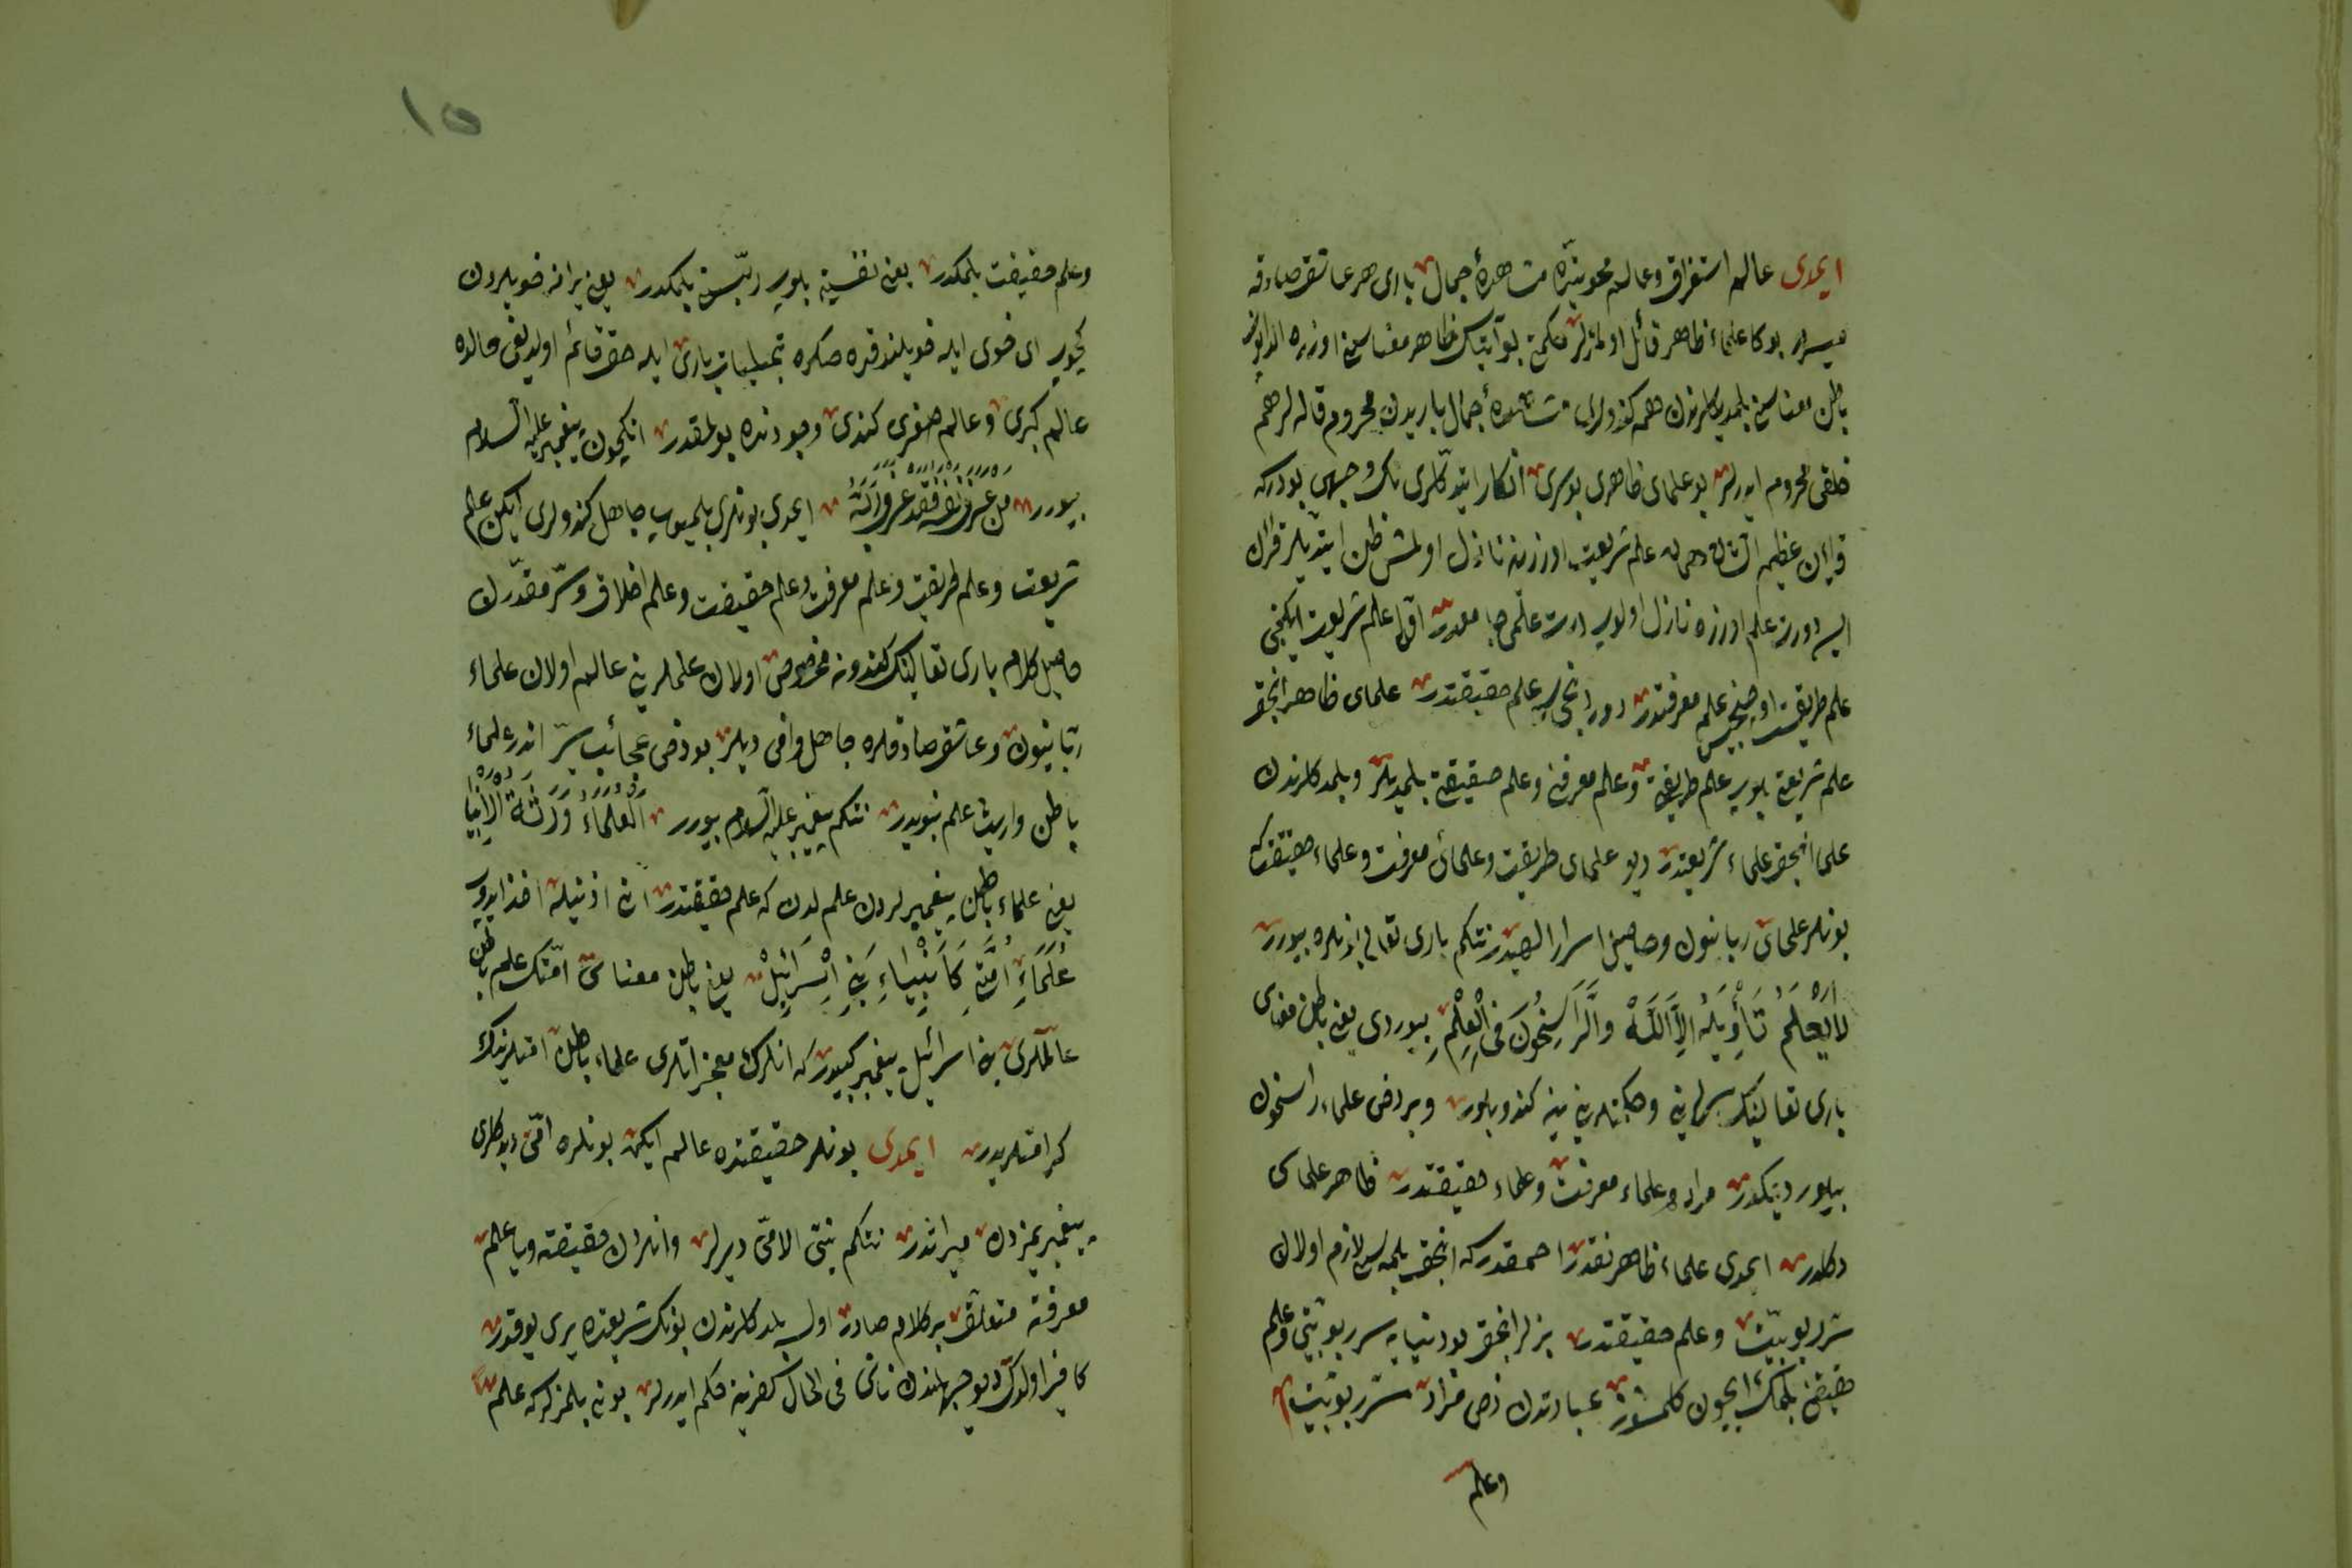 ایمدی عالم استغراق وعالم محویتده مشاهدهٔ جمال باری هر عاشق صادقه
میسردر بوکا علماء ظاهر قائل اولمزلر حکمتی بو آیتک ظاهر معناسی اوزره
باطن معناسین بلمدیکلرندن هم کندولری مشاهدهٔ جمال باریدن محروم قالورلر هم
خلقی محروم ایدرلر بو علمای ظاهری بو سری انکار ایتدکلری نک وجهی بودرکه
قرآن عظیم الشان همان علم شریعت اوزرینه نازل اولمش ظن ایتدیلر قرآن
ایسه دورت علم اوزره نازل اولوب دورت علمی جامعدر اول علم شریعت ایکنجی
علم طریقت اوچنجیسی علم معرفتدر دوردنجیسی علم حقیقتدر علمای ظاهر انجق
علم شریعتی بلوب علم طریقتی وعلم معرفتی وعلم حقیقتی بلمدیلر وبلمدکلرندن
علما انجق علماء شریعتدر دیو علمای طریقت وعلمای معرفت وعلماء حقیقت که
بونلر علمای ربانیون وصاحب اسرار الهیدر نتکم باری تعالی انلره بیورر
لَا يَعْلَمُ تَأْوِيلَهُ اِلَّا اللّٰهُ وَالرَّاسِخُونَ فِى الْعِلْمِ بیوردی یعنی باطن معناسی
باری تعالینک سرلرینی وحکمتلرینی ینه کندو بلور وبر دخی علماء راسخون
بیلور دیمکدر مراد علماء معرفت وعلماء حقیقتدر ظاهر علماسی
دکلدر ایمدی علماء ظاهر نقدر احمقدرکه انجق بلمه‌سی لازم اولان
سر ربوبیت وعلم حقیقتدر بزلر انجق بو دنیایه سر ربوبیتی وعلم
حقیقتی بلمک ایچون کلمشز عبادتدن دخی مراد سر ربوبیت
وعلم
١٥
وعلم حقیقت بلمکدر یعنی نفسینی بلوب ربّسنی بلمکدر یعنی بر آنه قویلردن
کچوب ای قوی ایله قویلندقدن صکره تجلیات باری ایله حق قائم اولدیغی حالده
عالم کبری وعالم صغری کندی وجودنده بولمقدر انکیچون پیغمبر علیه السلام
بیورر مَنْ عَرَفَ نَفْسَهُ فَقَدْ عَرَفَ رَبَّهُ ایمدی بونلری بلمیوب جاهل کندولری ایکن علم
شریعت وعلم طریقت وعلم معرفت وعلم حقیقت وعلم اخلاق وسر مقدّرک
حاصل کلام باری تعالینک کندونه مخصوص اولان علملرینی عالم اولان علماء
ربّانیون وعاشق صادقلره جاهل وافی دیلر بو دخی عجائب سرّ اندر علماء
باطن وارث علم نبویدر نتکم پیغمبر علیه السلام بیورر اَلْعُلَمَاءُ وَرَثَةُ الْاَنْبِيَا
یعنی علماء باطن پیغمبرلردن علم لدن که علم حقیقتدر انی اذنیله اخذ ایدوب
عُلَمَاءُ اُمَّتِى كَاَنْبِيَاءِ بَنِى اِسْرَائِيلَ یعنی باطن معناسی امتک علم باطن
عالملری بنی اسرائیل پیغمبر کبیدرکه انلرک معجزاتلری علماء باطن امتلرینک
کرامتلریدر ایمدی بونلر حقیقتده عالم ایکن بونلره امّی دیدکلری
پیغمبریمزدن میراثدر نتکم نبیّ الامّی دیرلر وانلردن حقیقته ویا علم
معرفته متعلق بر کلام صادر اولسه بلمدکلرندن بونک شریعتده یری یوقدر
کافر اولدک دیو جهللرندن ناشی فی الحال کفرینه حکم ایدرلر بونی بلمزلرکه علم